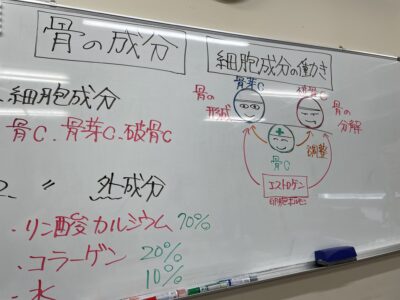 骨の成分
細胞成分
骨C.骨芽C.破骨C
2. 〃 外成分
・リン酸カルシウム 70%
・コラーゲン 20%
・水 10%
細胞成分の働き
骨芽C
破骨C
骨の形成
骨の分解
骨C
調整
エストロゲン